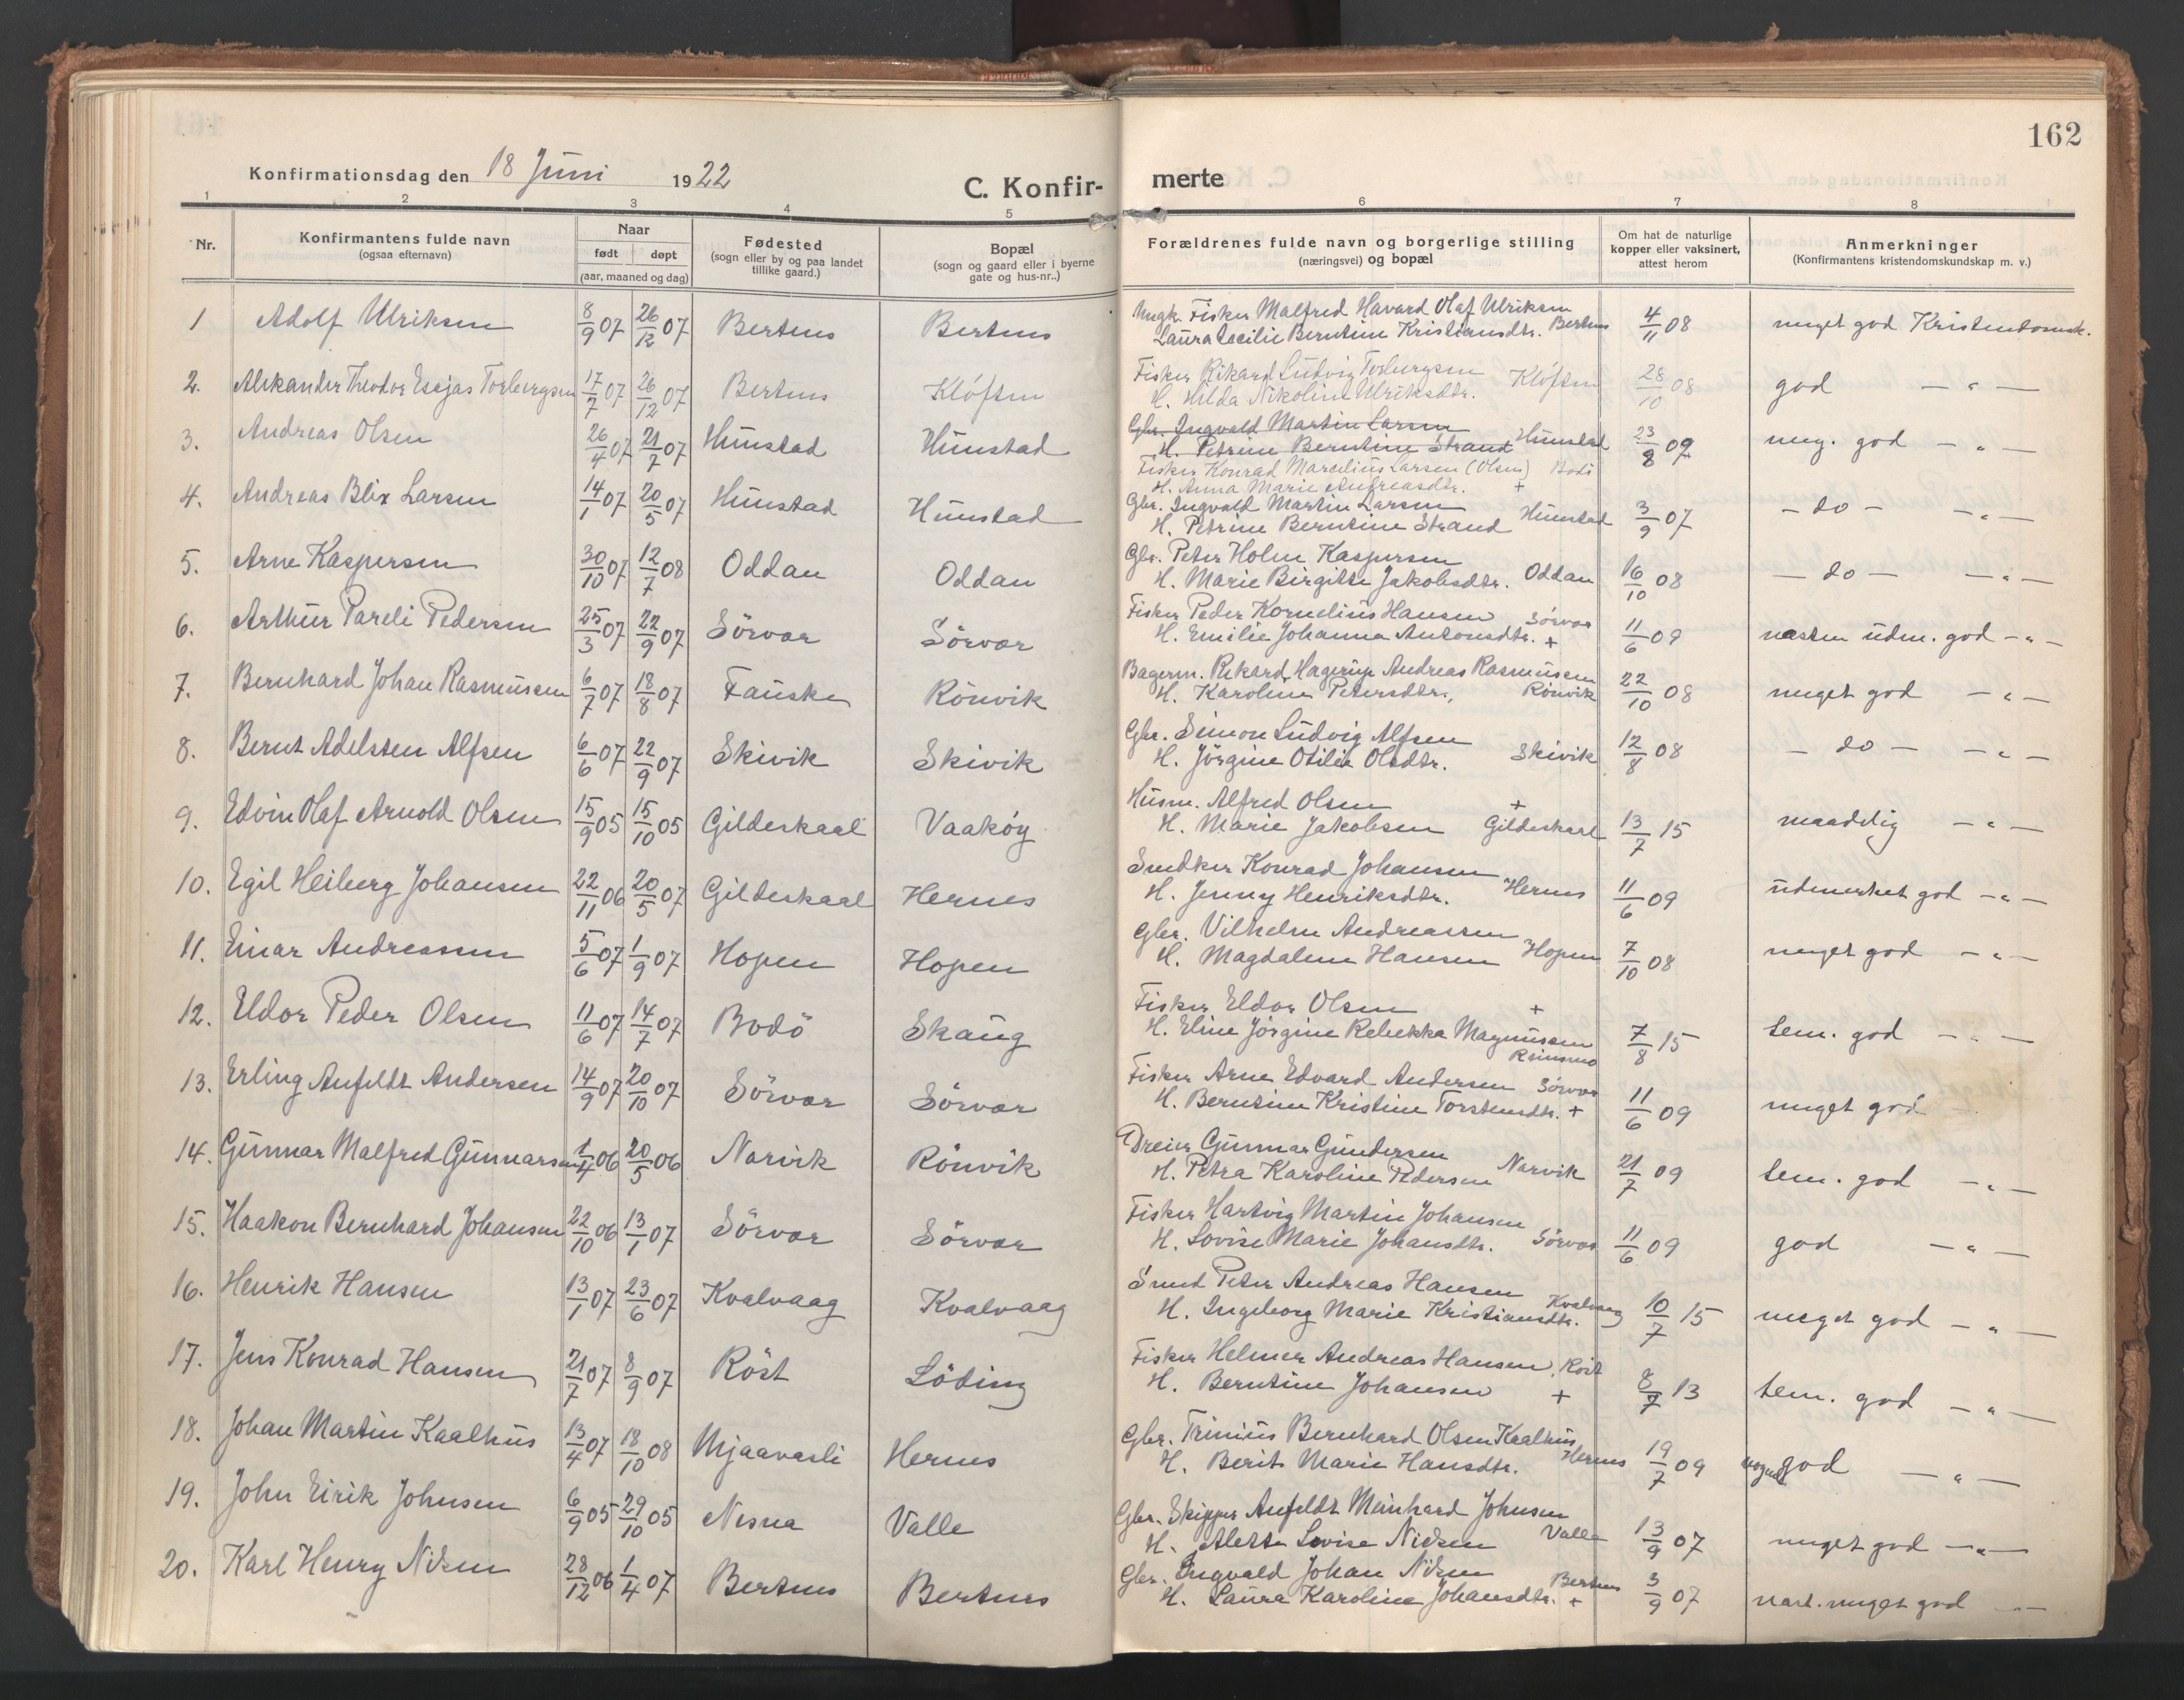 162
Konfirmationsdag den 18 Juni 1922
C. Konfir-
merte
1 2 3 4 5 6 7 8
Nr.
Konfirmantens fulde navn
(ogsaa efternavn)
Naar
født døpt
(aar, maaned og dag)
Fødested
(sogn eller by og paa landet
tillike gaard.)
Bopæl
(sogn og gaard eller i byerne
gate og hus-nr..)
Forældrenes fulde navn og borgerlige stilling
(næringsvei) og bopæl
Om hat de naturlige
kopper eller vaksinert,
attest herom
Anmerkninger
(Konfirmantens kristendomskundskap m. v.)
1 Adolf Ulriksen 8/9 07 26/12 07 Bertnes Bertnes
Ungk. Fisker Malfred Havard Olaf Ulriksen
Laura Cecilie Berntine Kristiansdtr. Bertnes 4/11 08 meget god Kristendomsk.
2. Aleksander Theodor Esejas Torbergsen 17/7 07 26/12 07 Bertnes Kløften
Fisker Rikard Ludvig Torbergsen
H. Hilda Nikoline Ulriksdtr. Kløften 28/10 08 god — " —
3. Andreas Olsen 26/4 07 21/7 07 Hunstad Hunstad
Gbr. Ingvald Martin Larsen
H. Petrine Berntine Strand Hunstad 23/8 09 meg. god — " —
Fisker Konrad Marselius Larsen (Olsen) Bodø
H. Anna Marie Andreasdtr. +
4. Andreas Blix Larsen 14/1 07 20/5 07 Hunstad Hunstad
Gbr. Ingvald Martin Larsen
H. Petrine Berntine Strand Hunstad 3/9 07 — do — — " —
5. Arne Kaspersen 30/10 07 12/7 08 Oddan Oddan
Gbr. Peter Holm Kaspersen
H. Marie Birgitte Jakobsdtr. Oddan 16/10 08 — do — — " —
6. Arthur Pareli Pedersen 25/3 07 22/9 07 Sörvær Sörvær
Fisker Peder Kornelius Hansen Sörvær
H. Emilie Johanna Antonsdtr. + 11/6 09 næsten udm. god — " —
7. Bernhard Johan Rasmussen 6/7 07 18/8 07 Fauske Rönvik
Bagerm. Rikard Hagerup Andreas Rasmussen
H. Karoline Petersdtr., Rönvik 22/10 08 meget god — " —
8. Bernt Adelsten Alfsen 6/6 07 22/9 07 Skivik Skivik
Gbr. Simon Ludvig Alfsen
H. Jörgine Otilie Olsdtr. Skivik 12/8 08 — do — — " —
9. Edvin Olaf Arnold Olsen 15/9 05 15/10 05 Gildeskaal Vaaköy
Husm. Alfred Olsen +
H. Marie Jakobsen Gildeskaal 13/7 15 maadelig — " —
10. Egil Heiberg Johansen 22/11 06 20/5 07 Gildeskaal Hernes
Snedker Konrad Johansen
H. Jenny Henriksdtr. Hernes 11/6 09 udmerket god — " —
11. Einar Andreassen 5/6 07 1/9 07 Hopen Hopen
Gbr. Vilhelm Andreassen
H. Magdalene Hansen Hopen 7/10 08 meget god — " —
12. Eldor Peder Olsen 11/6 07 14/7 07 Bodö Skaug
Fisker Eldor Olsen +
H. Eline Jörgine Rebekka Magnussen
7/8 15 tem. god — " —
13. Erling Anfeldt Andersen 14/9 07 20/10 07 Sörvær Sörvær
Fisker Arne Edvard Andersen Sörvær
H. Berntine Kristine Torstensdtr. + 11/6 09 meget god
14. Gunnar Malfred Gunnarsen 1/4 06 20/5 06 Narvik Rönvik
Dreier Gunnar Gundersen
H. Petra Karoline Pedersen Narvik 21/7 09 tem. god — " —
15. Haakon Bernhard Johansen 22/10 06 13/1 07 Sörvær Sörvær
Fisker Hartvig Martin Johansen
H. Lovise Marie Johansdtr. Sörvær 11/6 09 god — " —
16. Henrik Hansen 13/1 07 23/6 07 Kvalvaag Kvalvaag
Smed Peter Andreas Hansen
H. Ingeborg Marie Kristiansdtr. Kvalvaag 10/7 15 meget god — " —
17. Jens Konrad Hansen 21/7 07 8/9 07 Röst Löding
Fisker Helmer Andreas Hansen, Röst
H. Berntine Johansen + 8/7 13 tem. god — " —
18. Johan Martin Kaalhus 13/4 07 18/10 08 Mjaavasli Hernes
Gbr. Trinius Bernhard Olsen Kaalhus
H. Berit Marie Hansdtr. Hernes 19/7 09 god — " —
19. John Eirik Johnsen 6/9 05 29/10 05 Nesna Valle
Gbr. Skipper Anfeldt Meinhard Johnsen
H. Alette Lovise Nilsen Valle 13/9 07 meget god — " —
20. Karl Henry Nilsen 28/12 06 1/4 07 Bertnes Bertnes
Gbr. Ingvald Johan Nilsen Bertnes
H. Laura Karoline Johansdtr. + 3/9 07 næst. meget god —